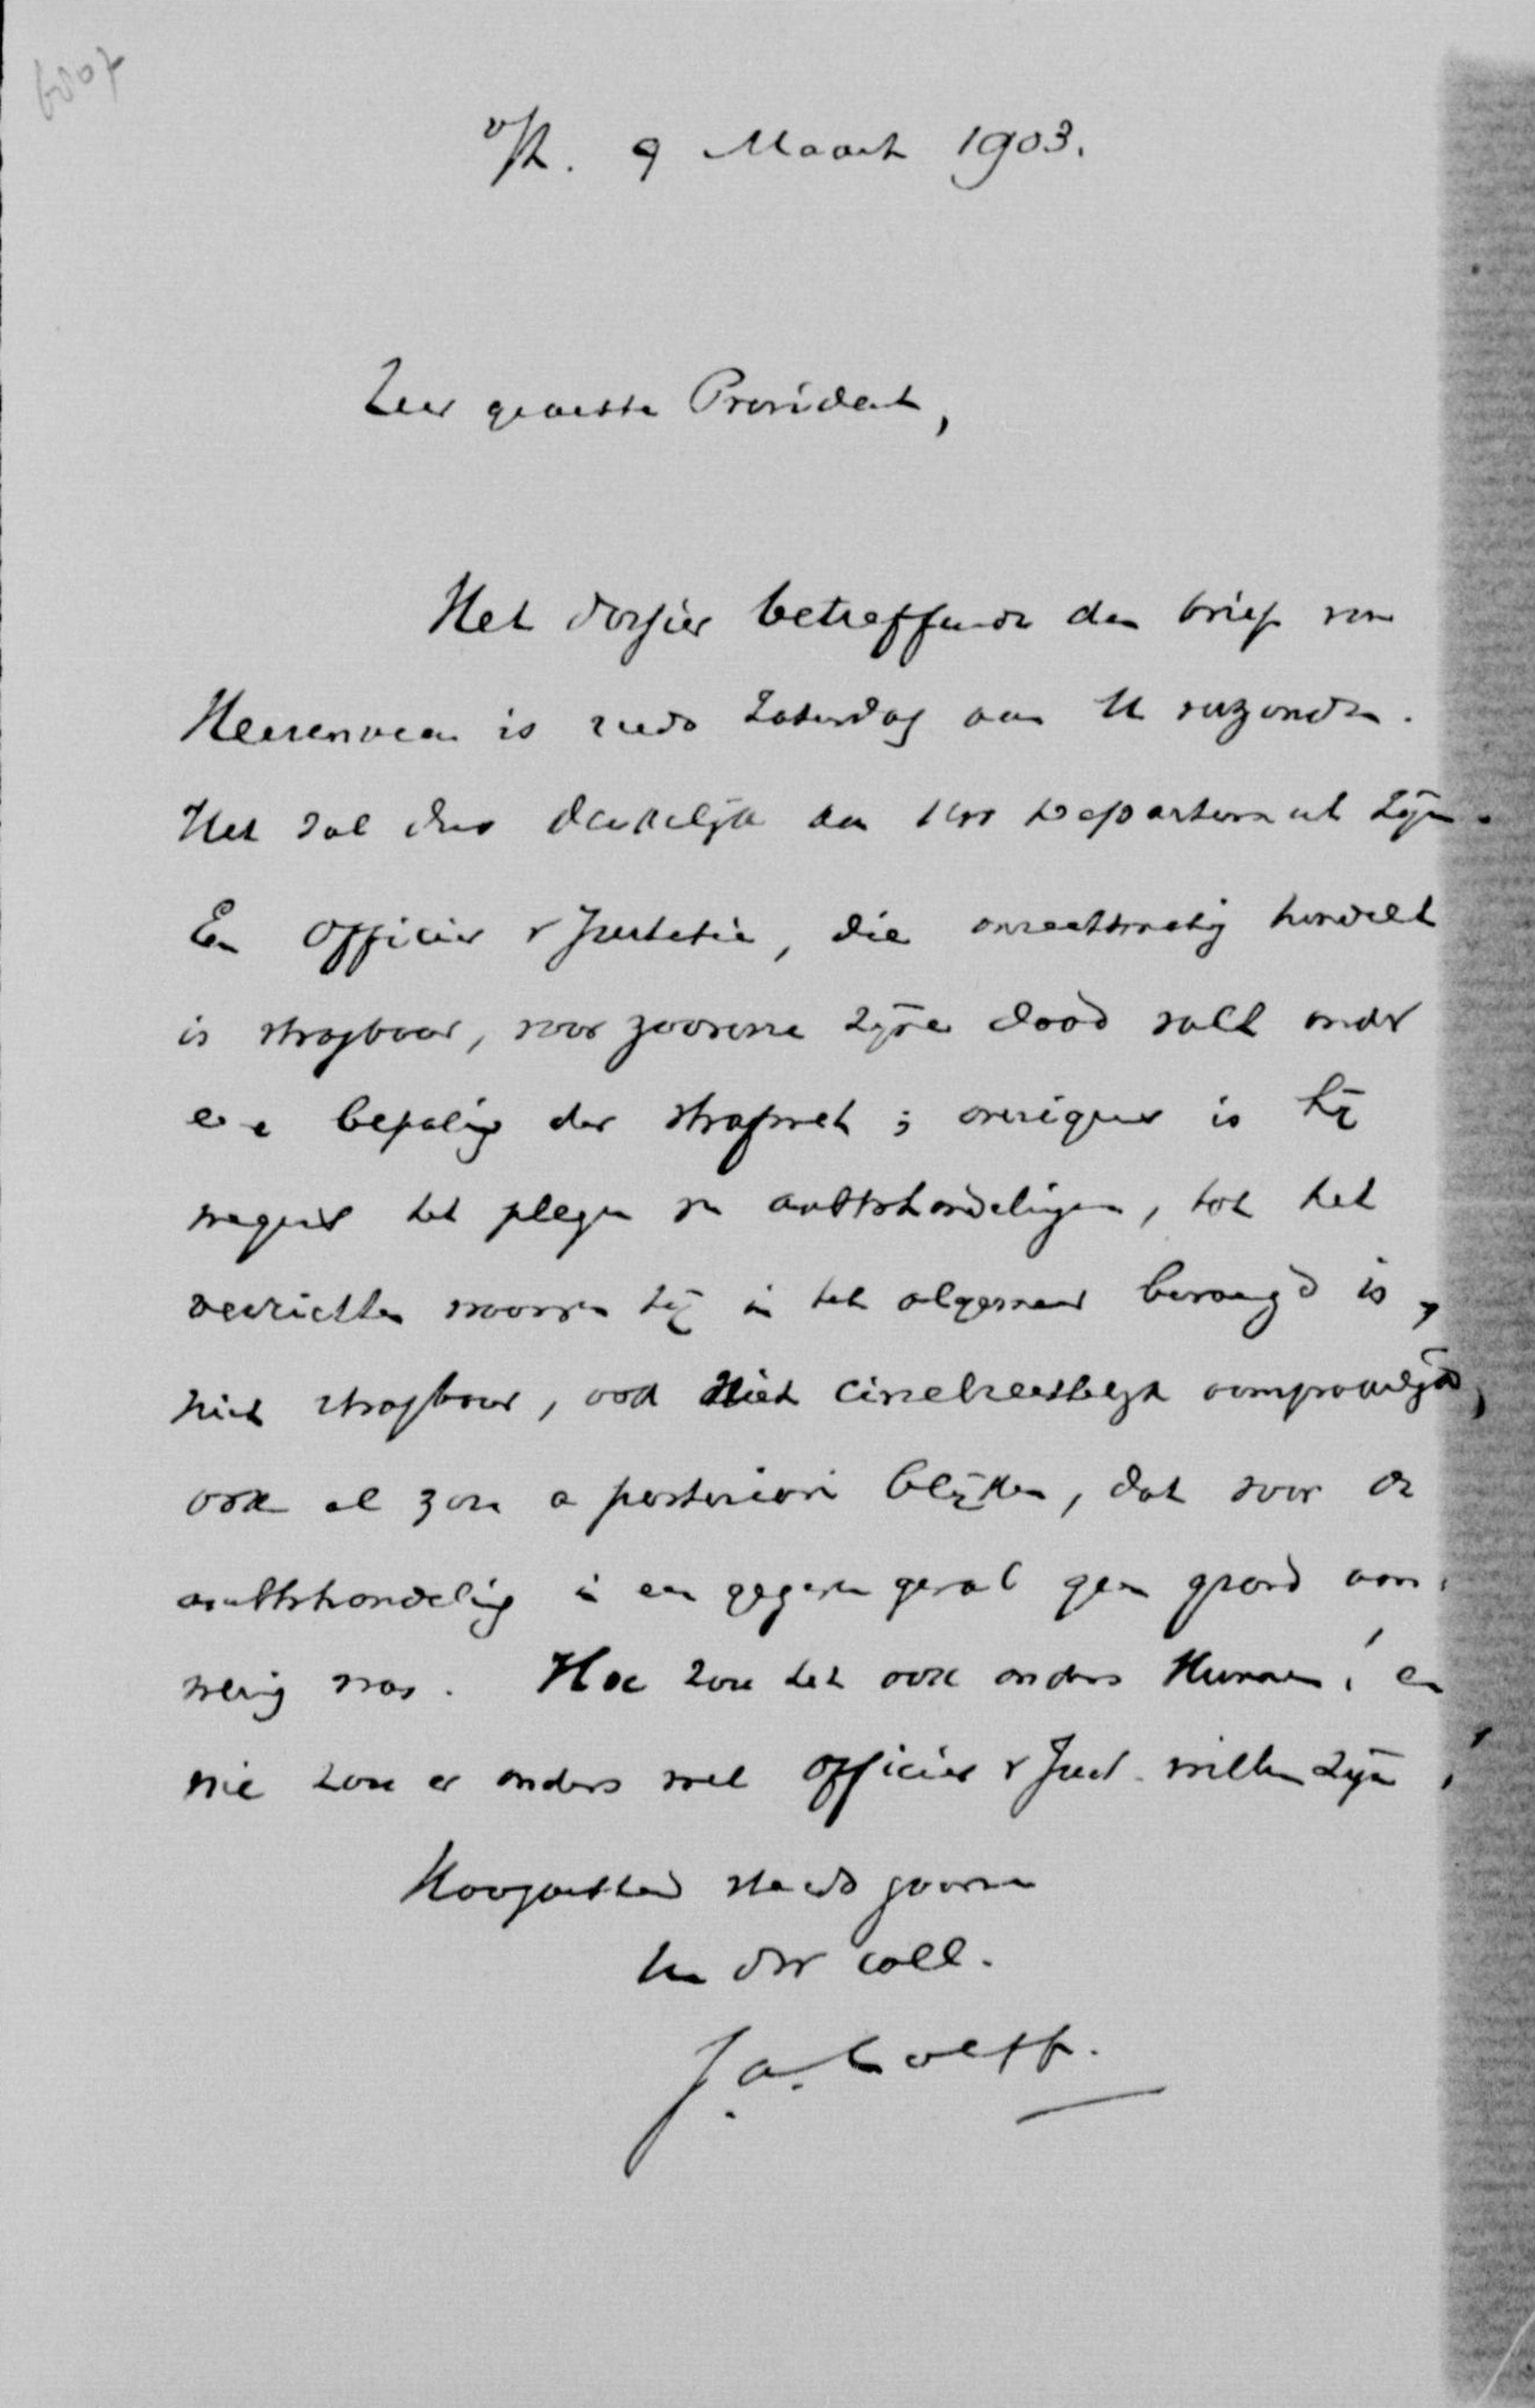 6807
9 Maart 1903.
Zeer geachte President,
Het dossier betreffende den brief van
Heerenveen is reeds Zaturdag aan U verzonden.
Het zal dus dadelijk aan Uw Departement zijn.
Een Officier v Justitie, die onrechtmatig handelt
is strafbaar, voor zooverre zijne daad valt onder
eene bepaling der strafwet; overigens is hij
wegens het plegen van ambtshandelingen, tot het
verrichten waarvan hij in het algemeen bevoegd is,
niet strafbaar, ook niet civielrechtelijk aansprakelijk,
ook al zou a posteriori blijken, dat voor de
ambtshandeling in een gegeven geval geen grond aan-
wezig was. Hoe zou het ook anders kunnen! en
wie zou er anders wel Officier v Just. willen zijn!
Hoogachtend steeds gaarne
Uw dw coll.
J.A. Loeff.